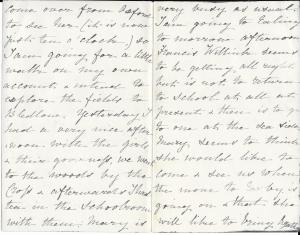 come over from Oxford
to see her (it is now
just ten o'clock) so
I am going for a little
walk on my own
account & intend to
explore the fields to
Bledlow. Yesterday I
had a very nice after
noon with the girls
& their governess, we went
to the woods by the
Cross & afterwards I had
tea in the Schoolroom
with them. Mary is
very busy as usual.
I am going to Ealing
to morrow afternoon
Francis seems
to be getting all right
but is not to return
to school at all at
present & then is to go
to one at the sea side
Mary seems to think
she would like to
come & see us when
the move to is
going on & that she
will like to bring